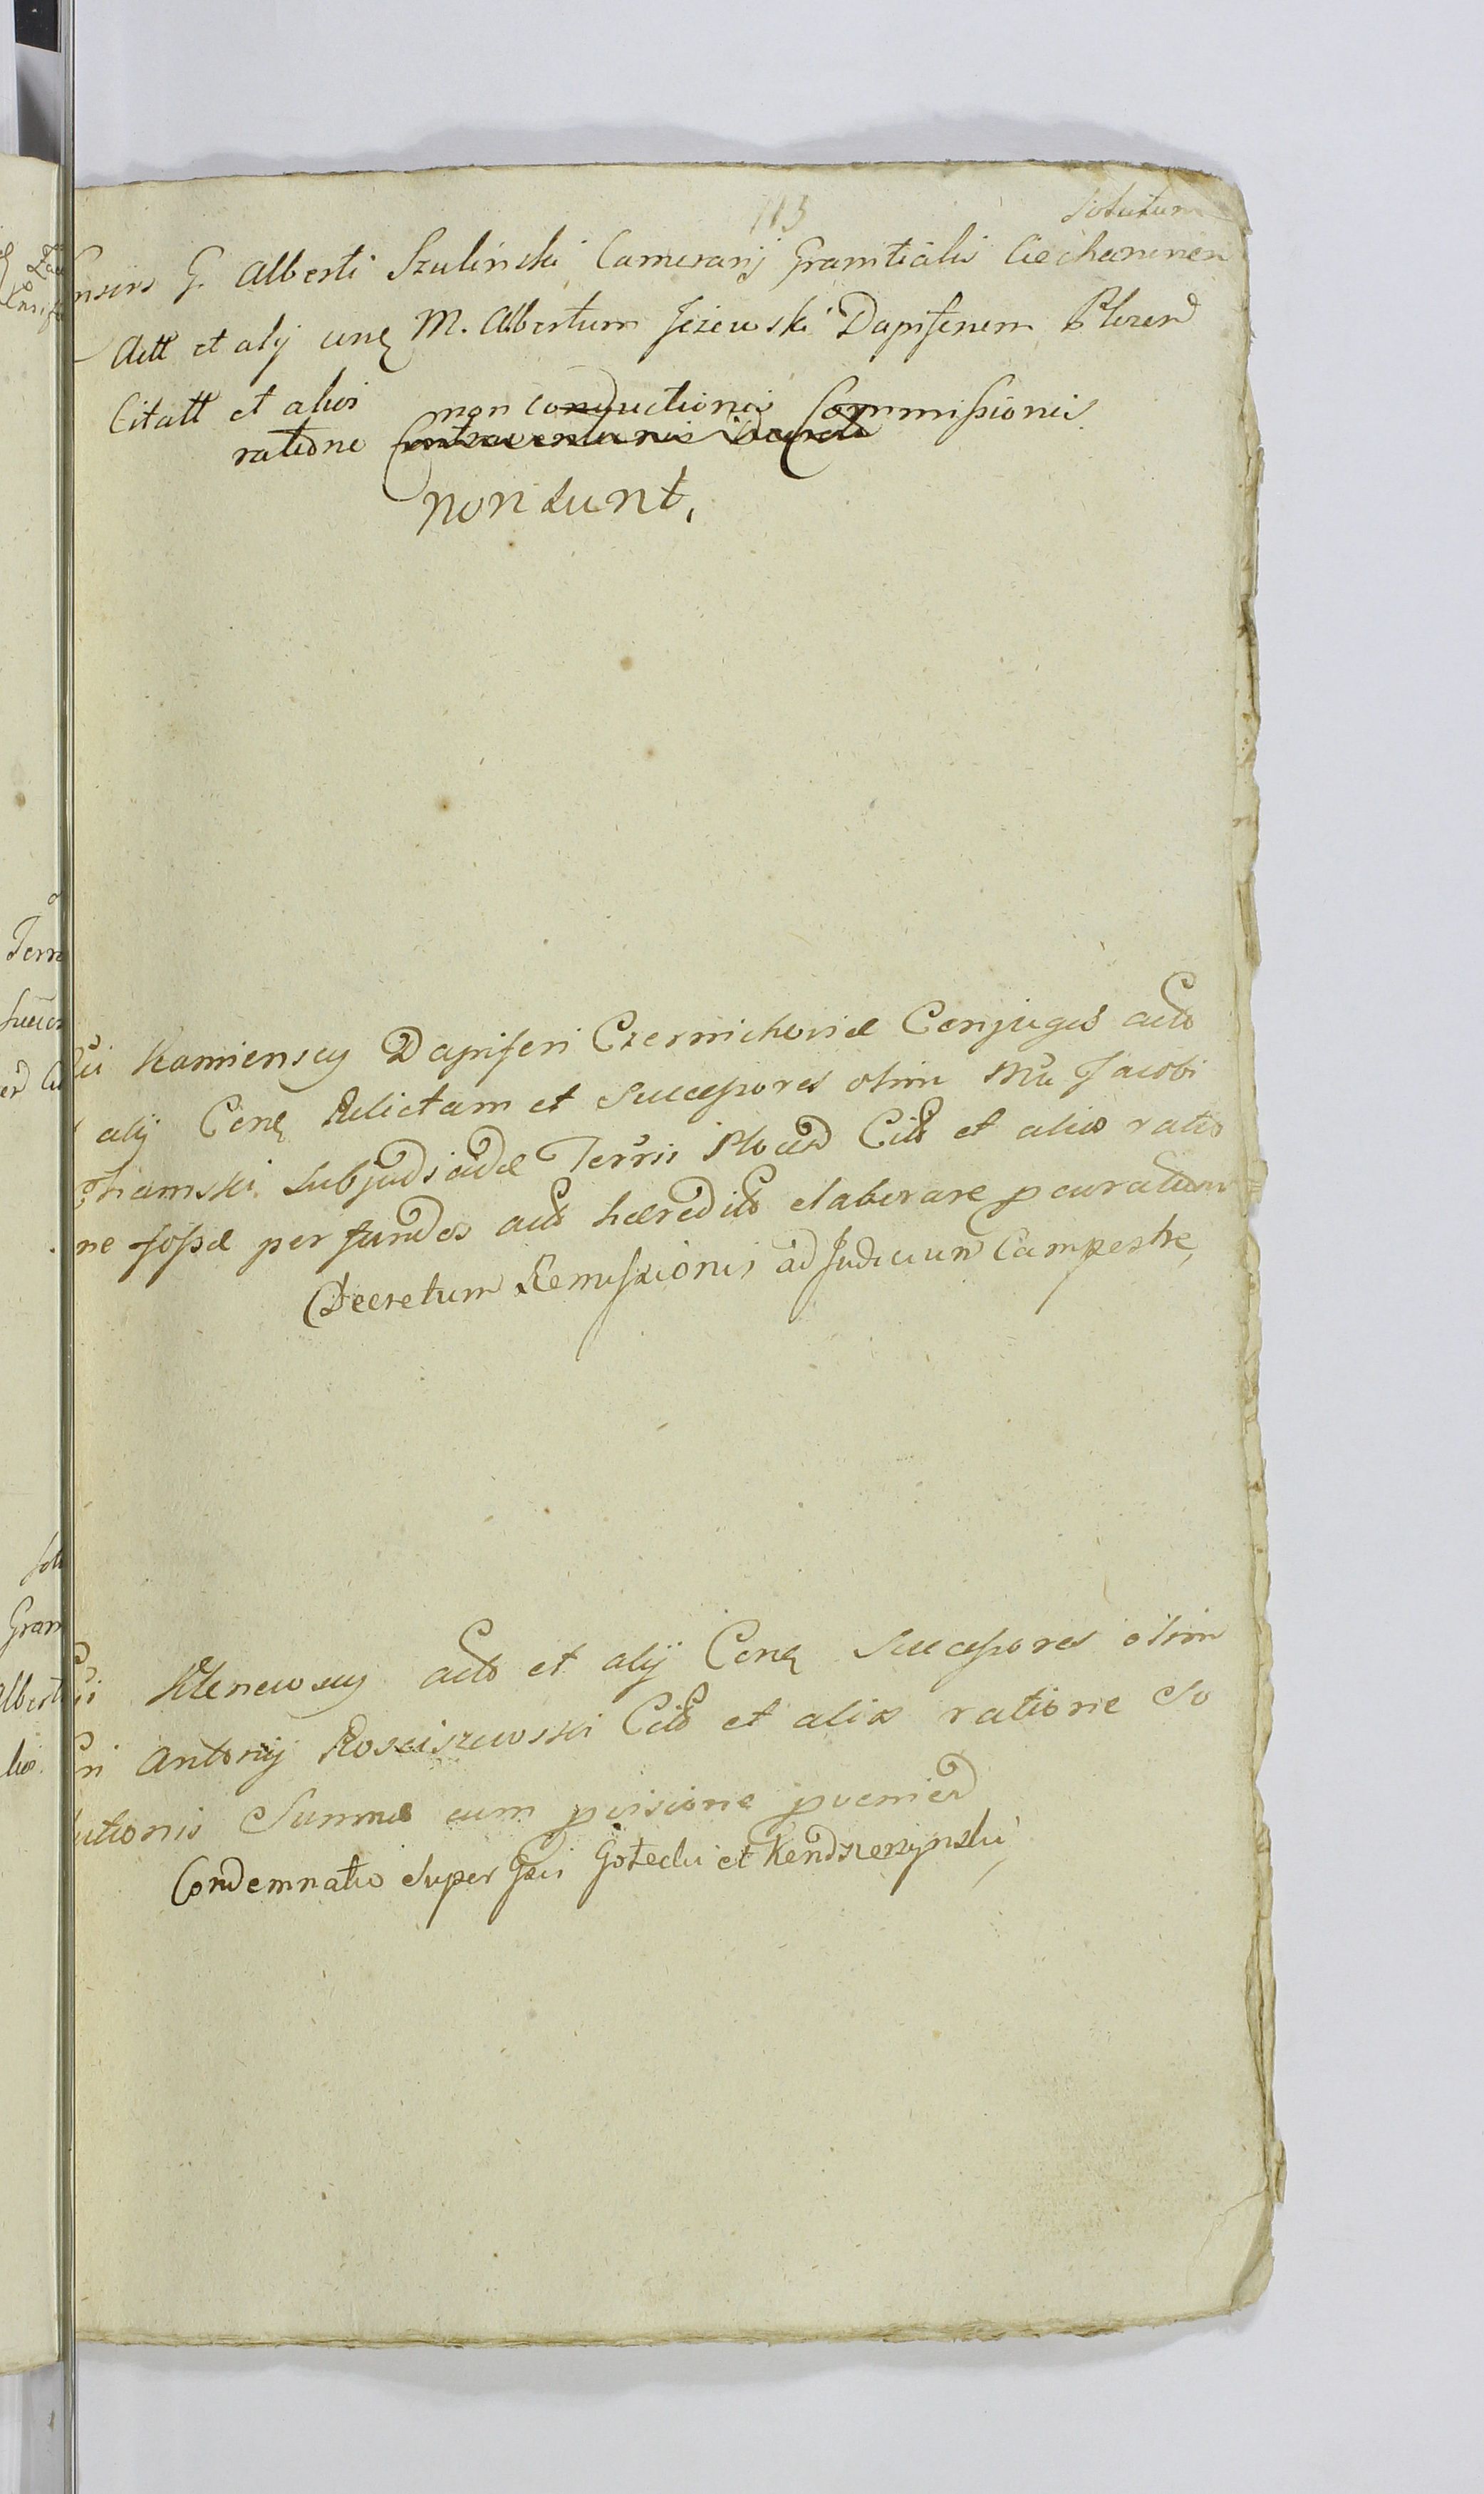 113
solutum
nsens G. Alberti Szulinski Camerarij Granitialis Ciechaninen
Actt et alij conq M. Albertum Jeżewski Dapiferum Plocen
Citatt et alios
non conductionis Commissionis
ratione Contraventionis
non sunt,
Kamienscy Dapiferi Czernichoviæ Conjuges act
alij Conq Relictam et Successores olim Mci Jacobi
Thamski Subjudicidæ Terris Plocen Citt et alios ratio
ne fossæ per fundos act hæredit elaborare pcuratum
Decretum Remissionis ad Judicium Campestre,
Klenewscy act et alij Conq Successores olim
Antonij Rosciszewski Citt et alios ratione So
lutionis Summæ cum pvisione pvenien
Condemnatio super Gsi Gołecki et Kendzierzynski